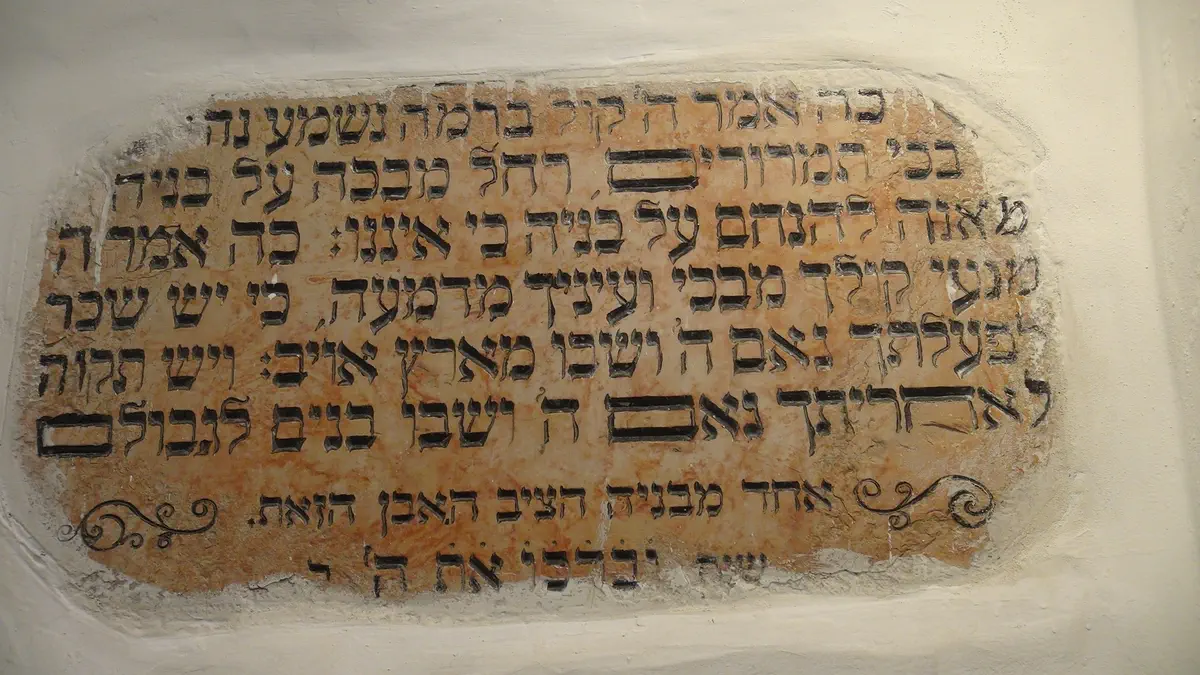 כה אמר ה' קול ברמה נשמע נהי
בכי תמרורים, רחל מבכה על בניה
מאנה להנחם על בניה כי איננו: כה אמר ה
מנעי קולך מבכי ועיניך מדמעה, כי יש שכר
לפעלתך נאם ה' ושבו מארץ אויב: ויש תקוה
לאחריתך נאם ה' ושבו בנים לגבולם
אחד מבניה הציב האבן הזאת.
את ה'